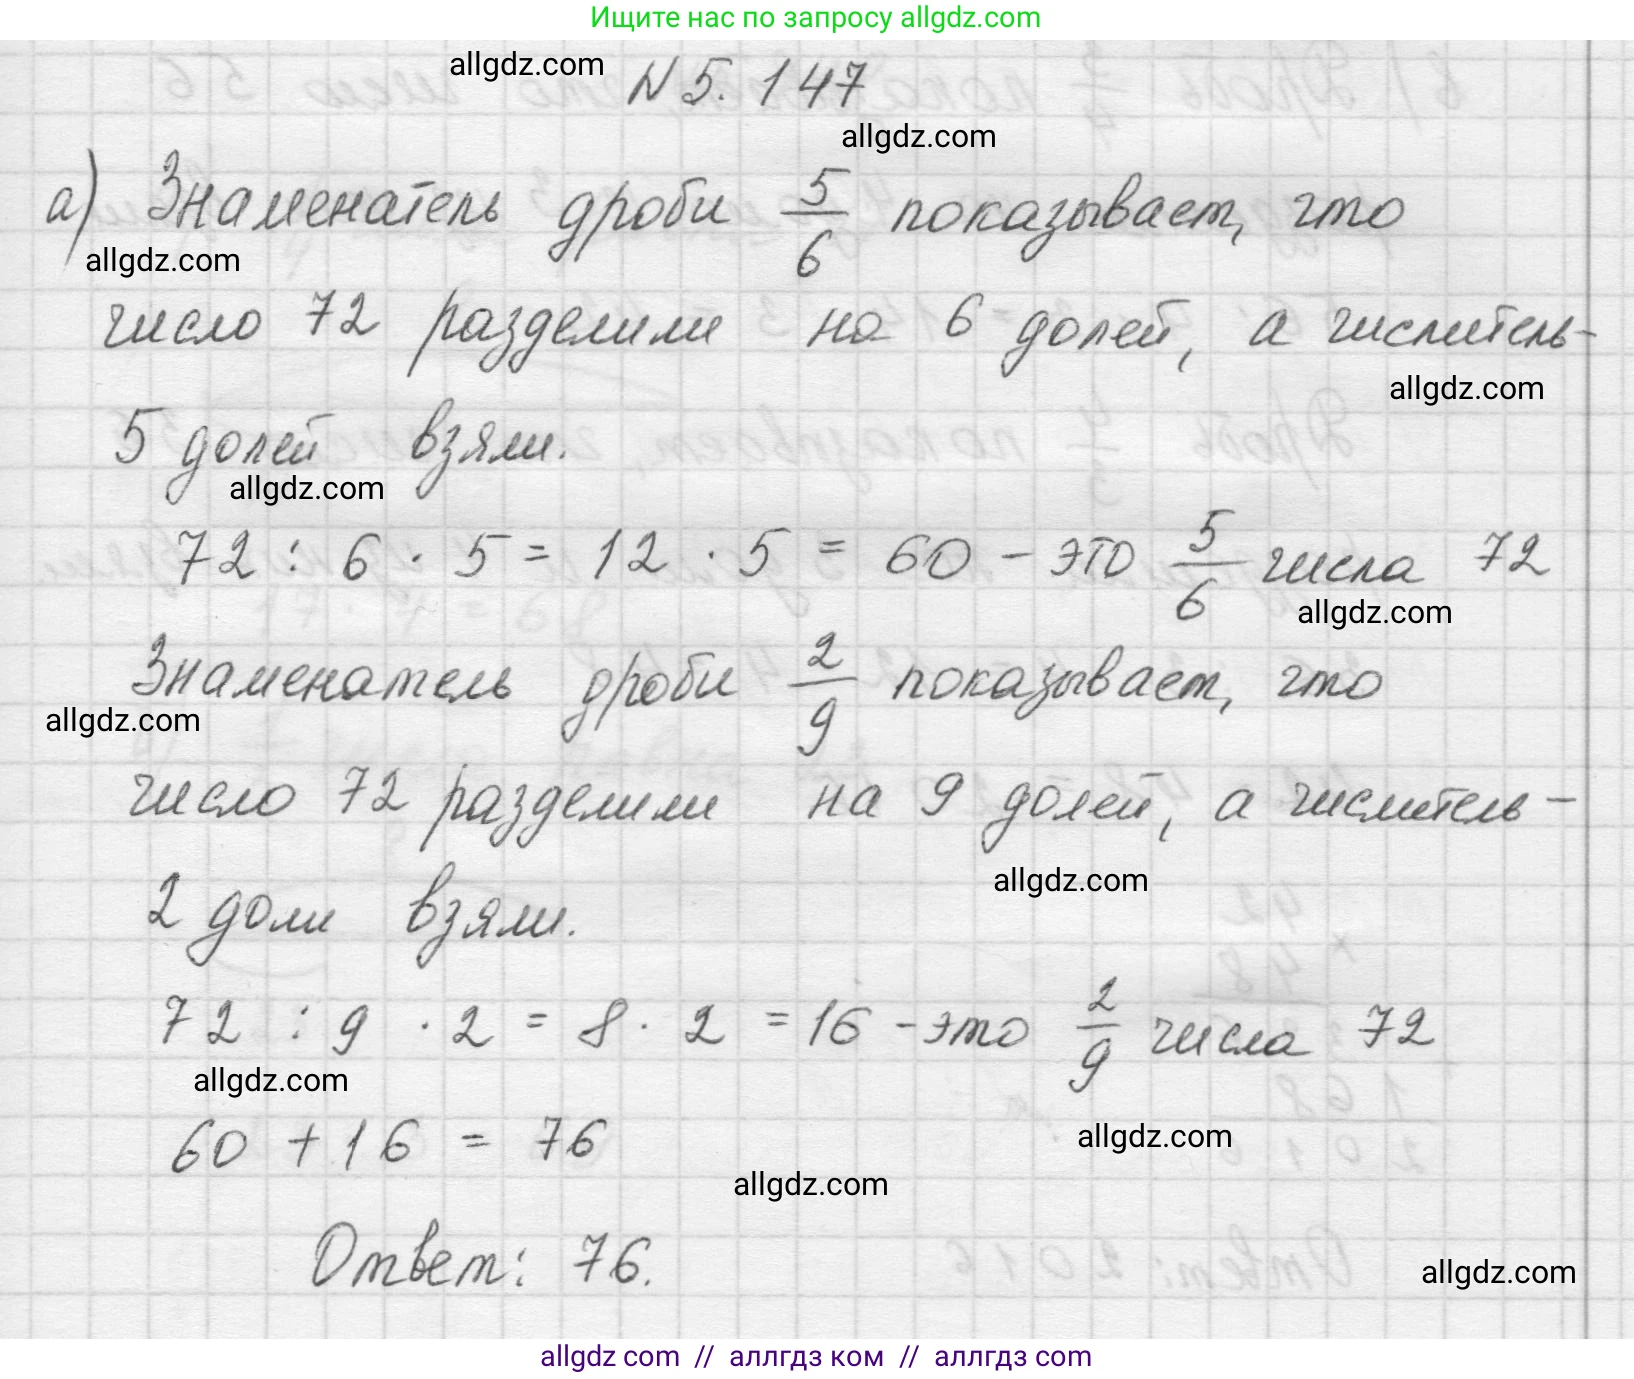 Ищите нас по запросу allgdz.com
allgdz.com
N 5. 147
allgdz.com
а) Знаменатель дроби 5/6 показывает, что
allgdz.com
число 72 разделили на 6 долей, а числитель-
allgdz.com
5 долей взяли.
allgdz.com
72 : 6 · 5 = 12 · 5 = 60 - это 5/6 числа 72
allgdz.com
Знаменатель дроби 2/9 показывает, что
allgdz.com
число 72 разделили на 9 долей, а числитель -
allgdz.com
2 доли взяли.
72 : 9 · 2 = 8 · 2 = 16 - это 2/9 числа 72
allgdz.com
allgdz.com
60 + 16 = 76
allgdz.com
Ответ: 76.
allgdz.com
allgdz com // аллгдз ком // аллгдз com